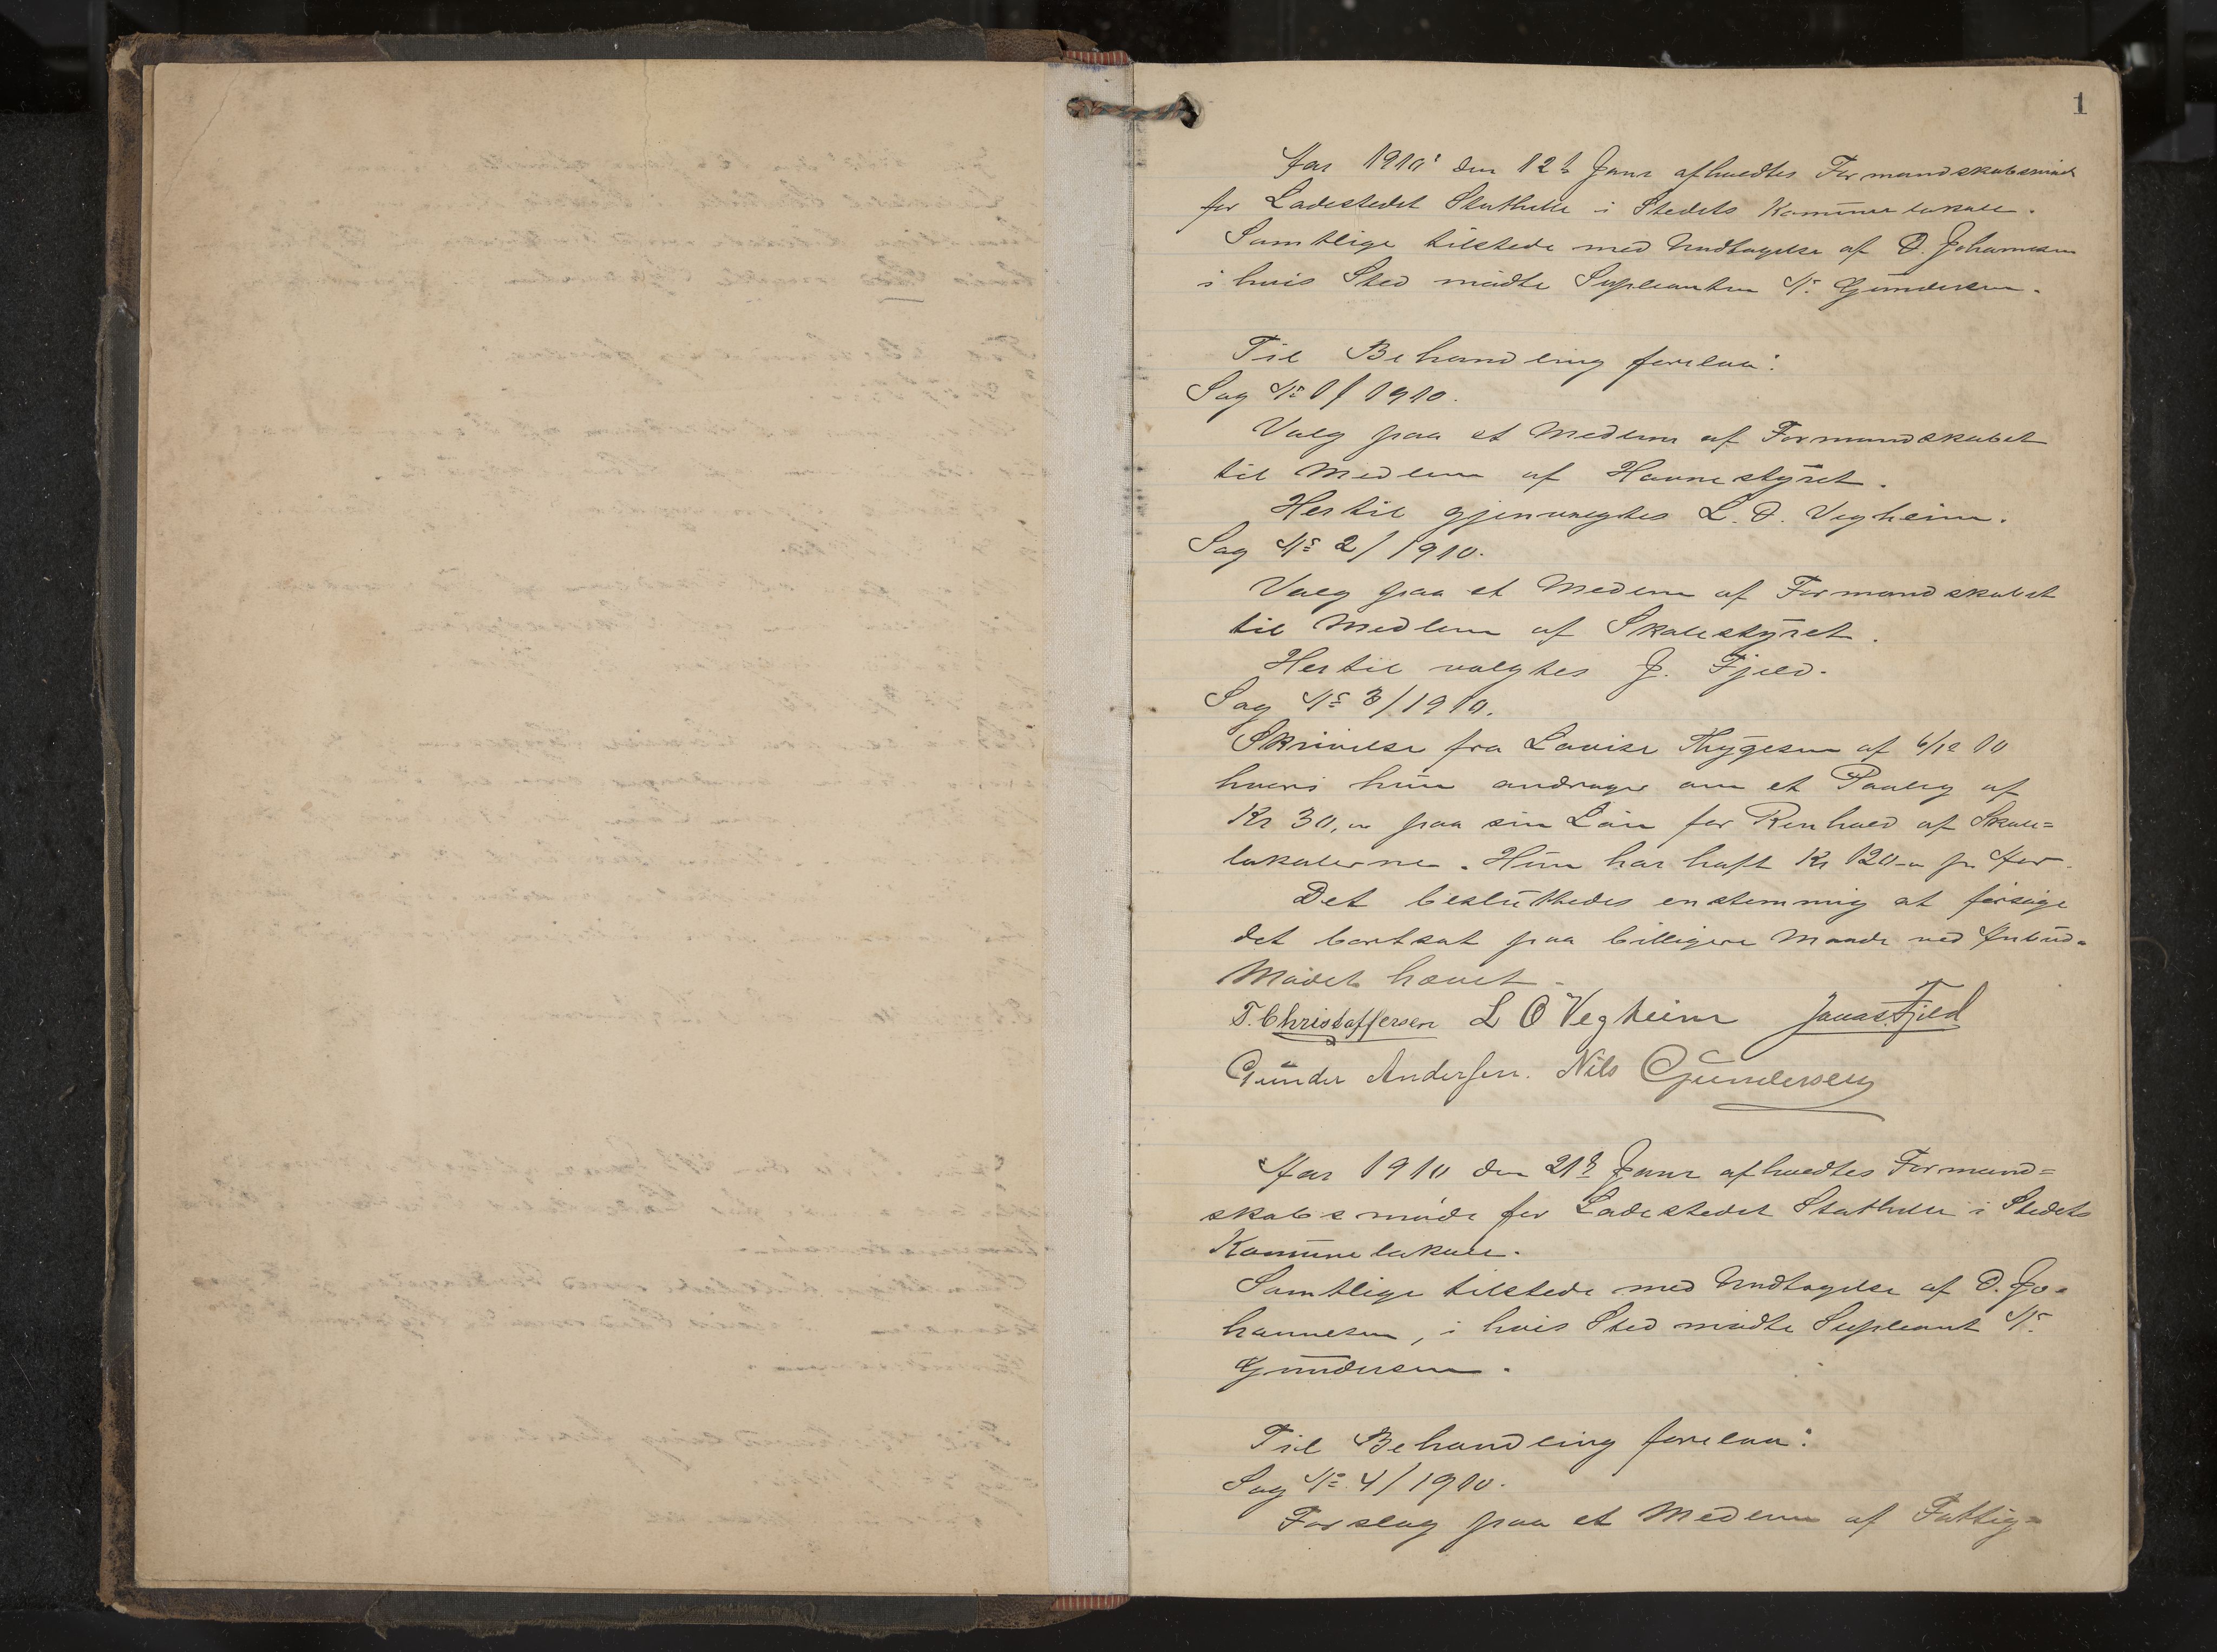 1
Aar 1910 den 12te Janr afholdtes Formandskabsmøde
for Ladestedet Stathelle i Stedets Kommunelokale.
Samtlige tilstede med Undtagelse af D. Johannesen
i hvis Sted mødte Supleanten N. Gundersen.
Til Behandling forelaa:
Sag No 1/1910.
Valg paa et Medlem af Formandskabet
til Medlem af Havnestyret.
Hertil gjenvalgtes L. O. Vegheim.
Sag No 2/1910.
Valg paa et Medlem af Formandskabet
til Medlem af Skolestyret.
Hertil valgtes J. Fjeld.
Sag No 3/1910.
Skrivelse fra Lovise Thygesen af 6/12
hvori hun andrager om et Paalæg af
Kr 30,00 paa sin Løn for Renhold af Skole=
lokalerne. Hun har haft Kr 120-00 pr Aar.
Det besluttedes enstemmig at forsøge
det bortsat paa billigere Maade ved Anbud-
Mødet hævet.
T. Christoffersen L O Vegheim Jonas Fjeld
Gunder Andersen. Nils Gundersen
Aar 1910 den 21de Janr afholdtes Formand=
skabsmøde for Ladestedet Stathelle i Stedets
Kommunelokale.
Samtlige tilstede med Undtagelse af D. Jo=
hannesen, i hvis Sted mødte Supleant N.
Gundersen.
Til Behandling forelaa:
Sag No 4/1910.
Forslag paa et Medlem af Fattig=